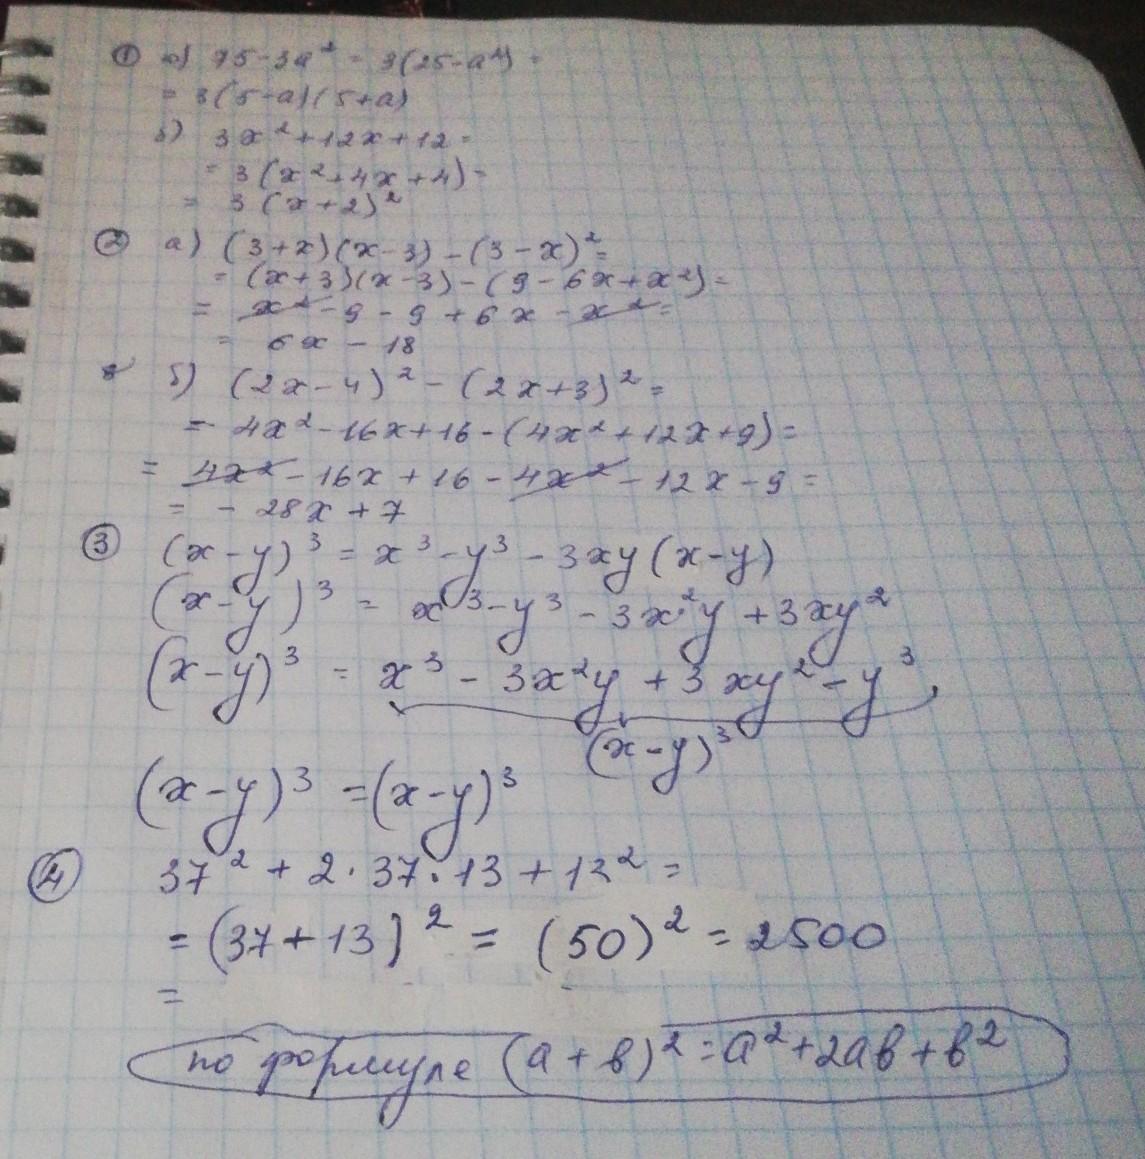 ① а) 75-3a² = 3(25-a²) =
= 3(5-a)(5+a)
б) 3x²+12x+12 =
= 3(x²+4x+4) =
= 3(x+2)²
② а) (3+x)(x-3) - (3-x)² =
= (x+3)(x-3) - (9-6x+x²) =
= x² - 9 - 9 + 6x - x² =
= 6x - 18
б) (2x-4)² - (2x+3)² =
= 4x² - 16x + 16 - (4x² + 12x + 9) =
= 4x² - 16x + 16 - 4x² - 12x - 9 =
= - 28x + 7
③ (x-y)³ = x³ - y³ - 3xy(x-y)
(x-y)³ = x³ - y³ - 3x²y + 3xy²
(x-y)³ = x³ - 3x²y + 3xy² - y³
(x-y)³
(x-y)³ = (x-y)³
④ 37² + 2·37·13 + 13² =
= (37+13)² = (50)² = 2500
=
по формуле (a+b)² = a²+2ab+b²